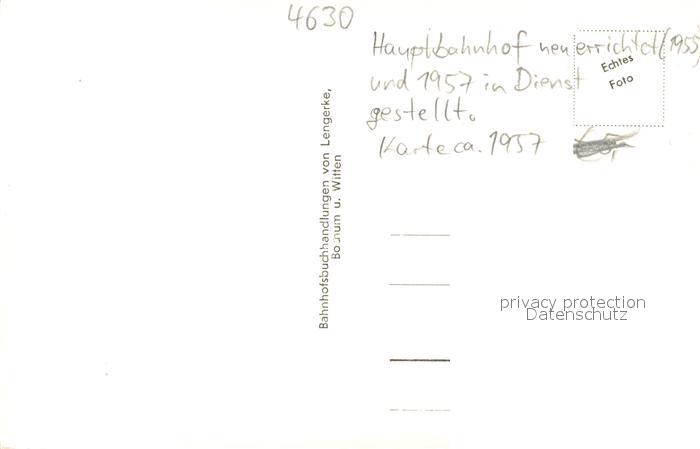 4630
Hauptbahnhof neu errichtet (1955)
und 1957 in Dienst
gestellt.
Karte ca. 1957
Echtes
Foto
Bahnhofsbuchhandlungen von Lengerke,
Bochum u. Witten
privacy protection
Datenschutz